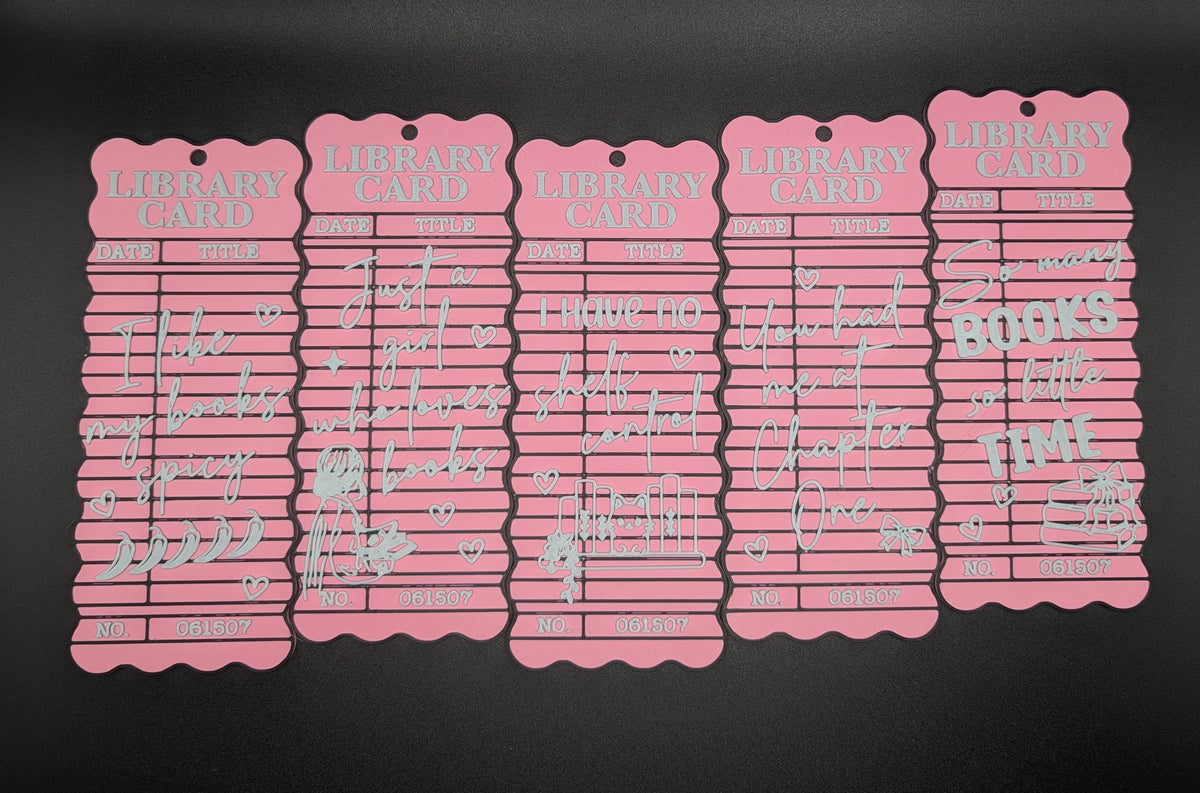 LIBRARY
CARD
DATE TITLE
I like
my books
spicy
NO. 061507
LIBRARY
CARD
DATE TITLE
Just a
girl
who loves
books
NO. 061507
LIBRARY
CARD
DATE TITLE
I HAVE NO
shelf
control
NO. 061507
LIBRARY
CARD
DATE TITLE
You had
me at
Chapter
One
NO. 061507
LIBRARY
CARD
DATE TITLE
So many
BOOKS
so little
TIME
NO. 061507